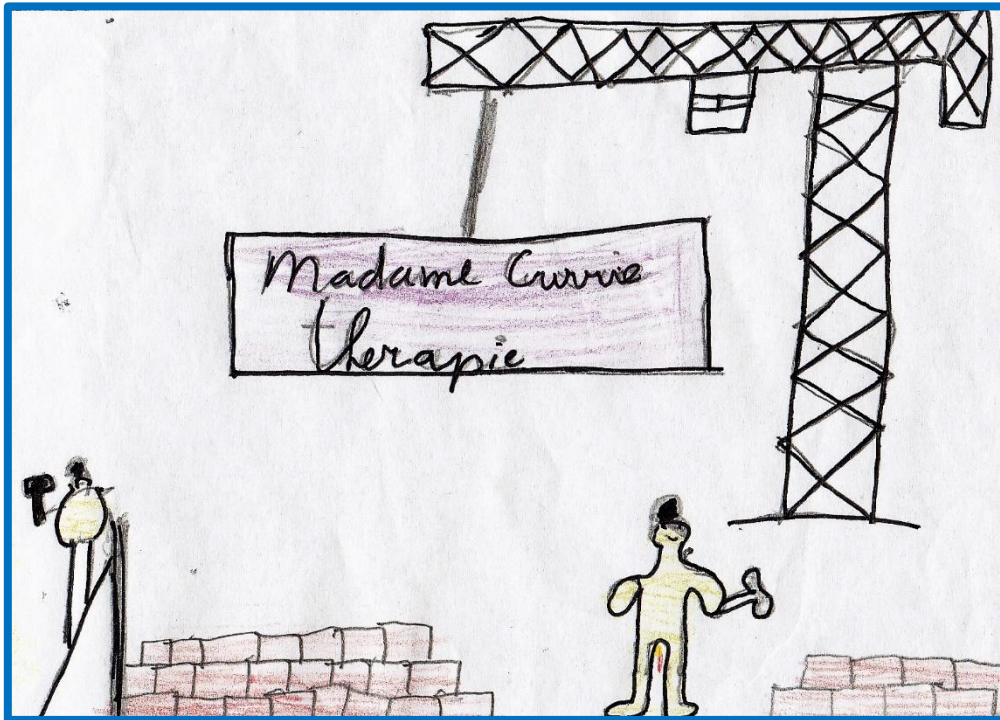 Madame Currie
therapie